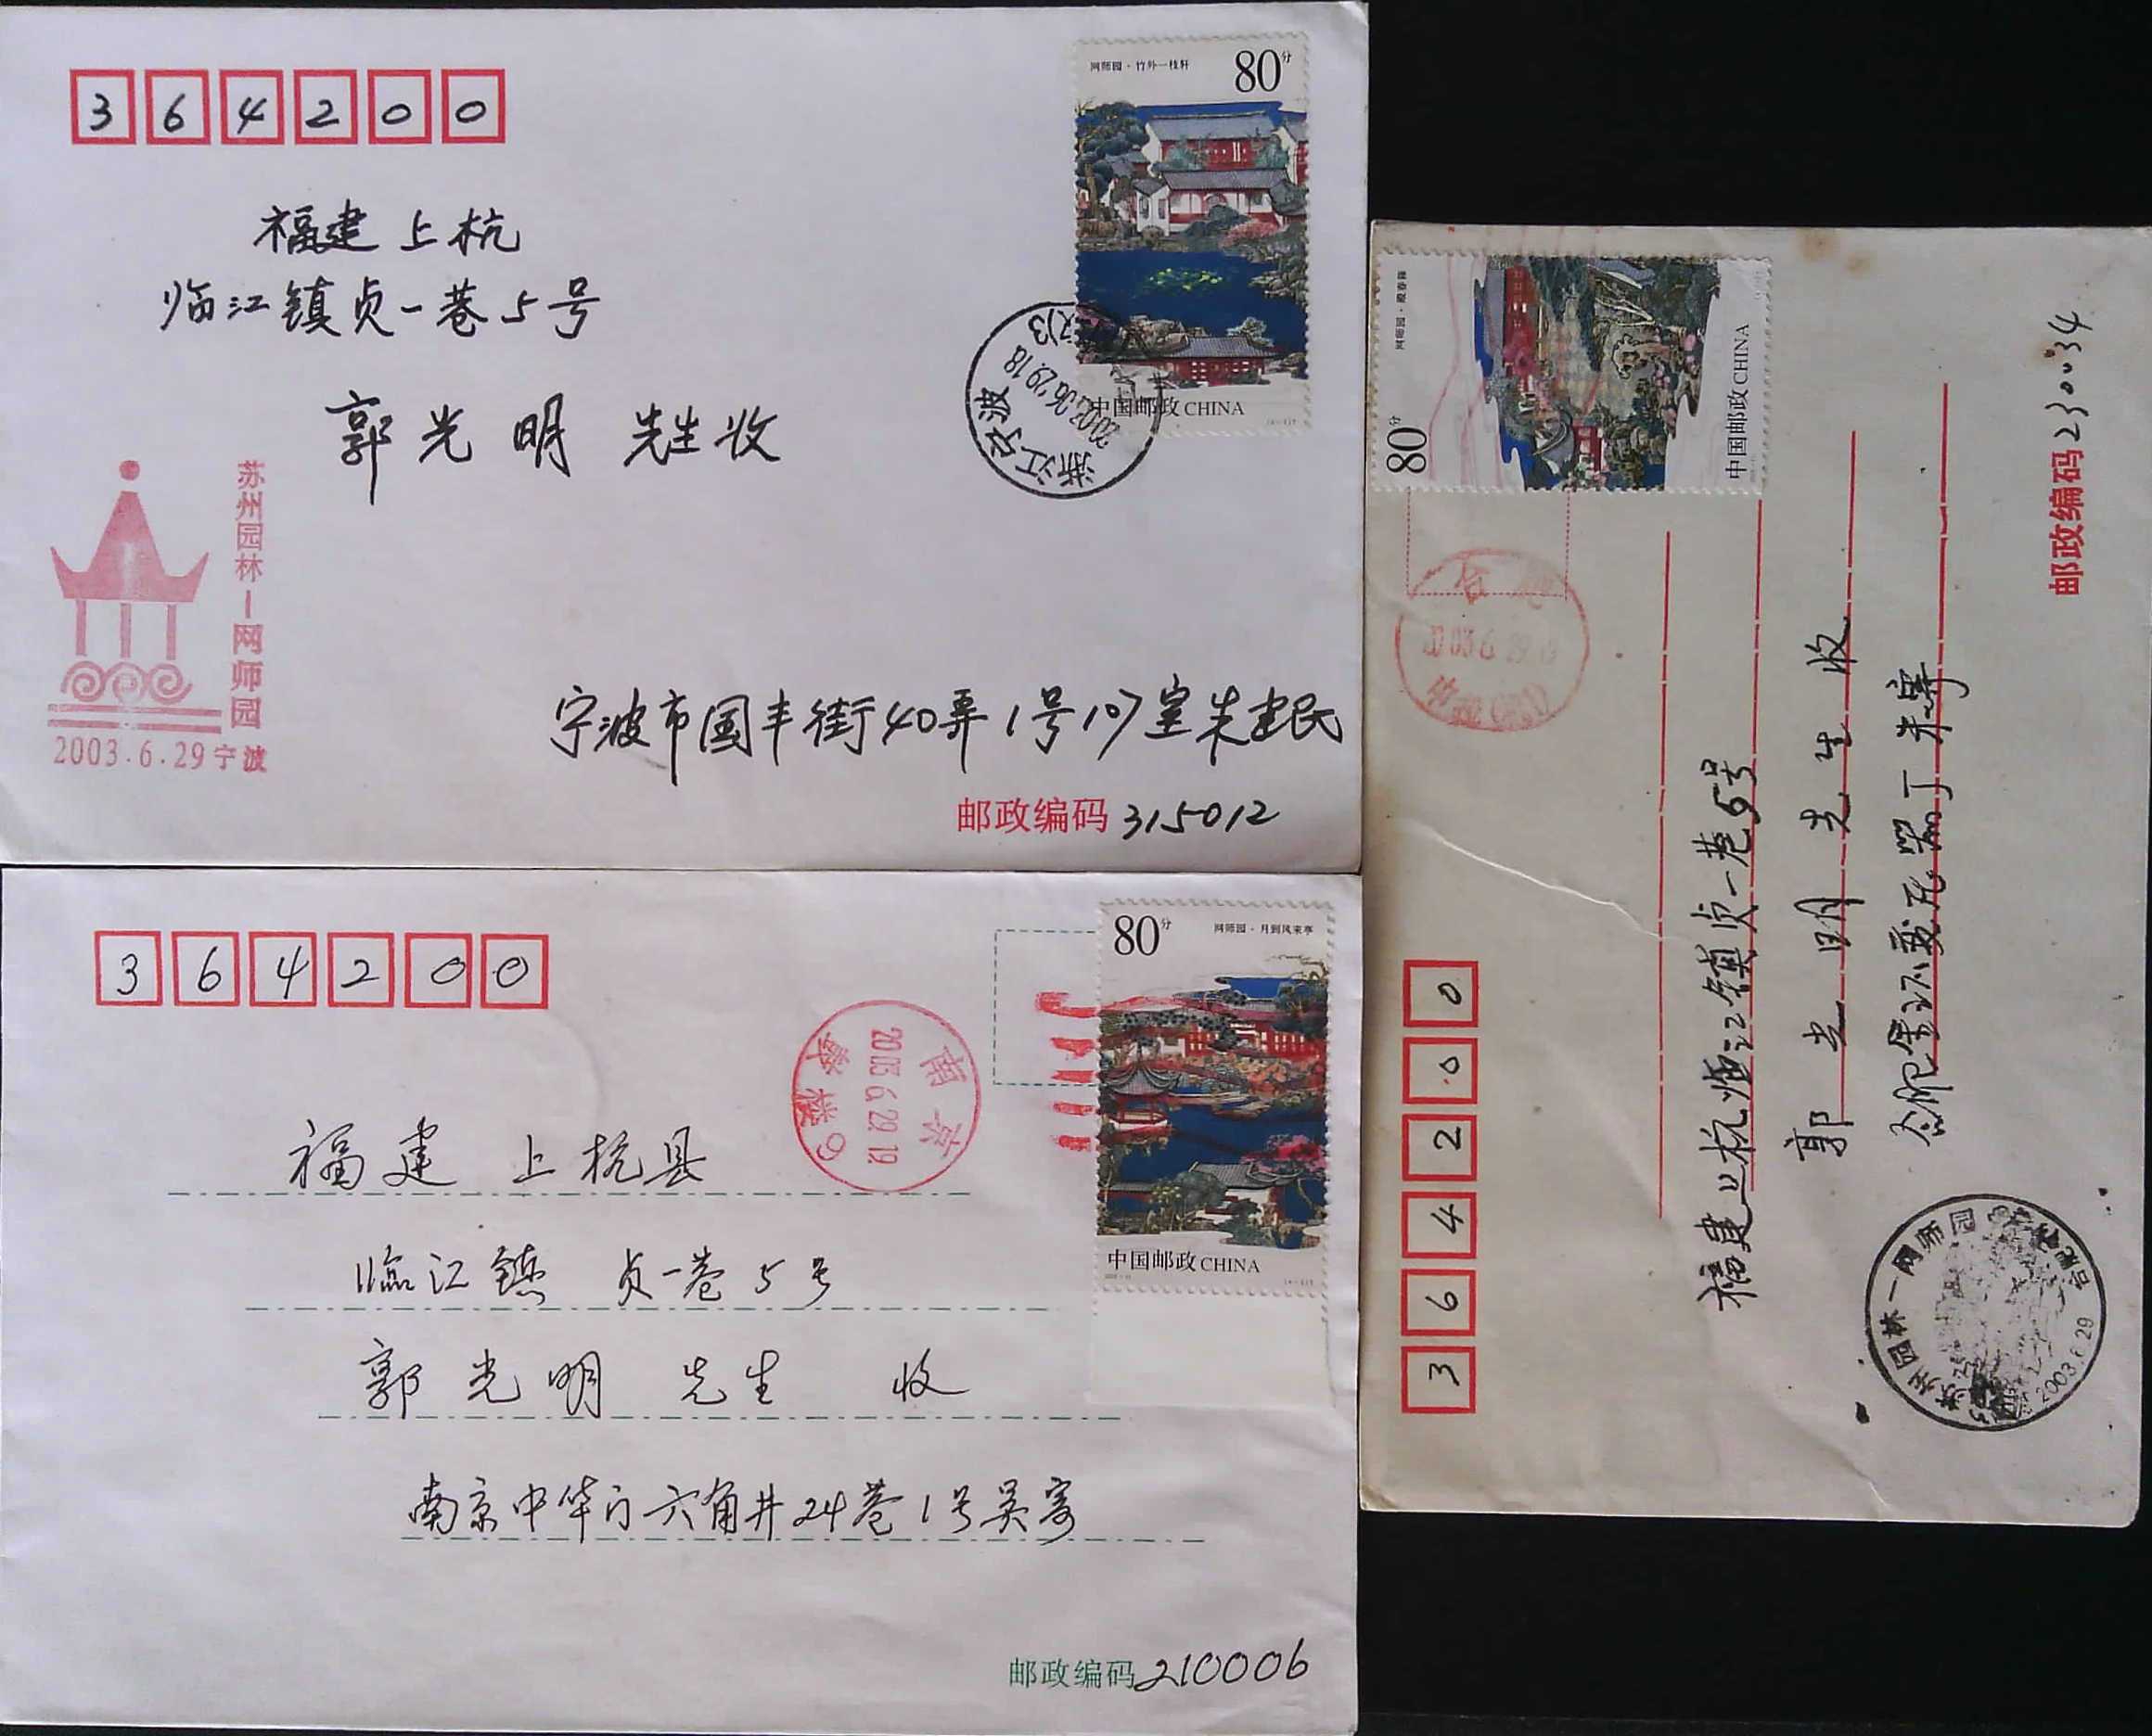 364200
网师园·竹外一枝轩 80分
福建 上杭
临江镇贞一巷5号
郭光明 先生收
中国邮政 CHINA
浙江宁波
苏州园林—网师园
2003.6.29宁波
宁波市国丰街40弄1号107室朱建民
邮政编码 315012
364200
80分 网师园·月到风来亭
南京
2003.6.29.19
福建 上杭县
临江镇 贞一巷5号
郭光明 先生 收
中国邮政 CHINA
南京中华门六角井24巷1号吴寄
邮政编码 210006
364200
80分
中国邮政 CHINA
合肥
2003.6.29
福建上杭临江镇贞一巷5号
郭光明先生收
邮政编码 230034
苏州园林—网师园
合肥
2003.6.29